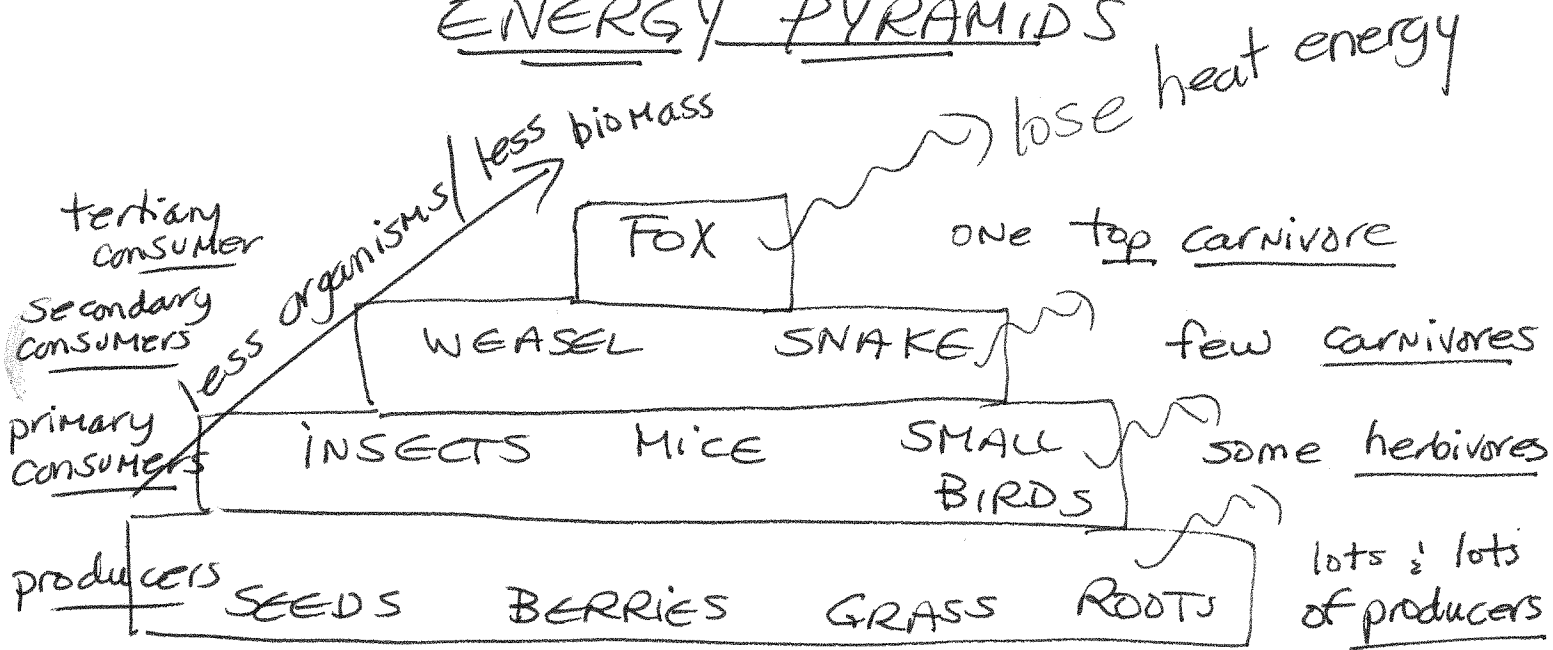 ENERGY PYRAMIDS
less organisms / less biomass
lose heat energy
tertiary
consumer
FOX
one top carnivore
secondary
consumers
WEASEL SNAKE
few carnivores
primary
consumers
INSECTS MICE SMALL
BIRDS
some herbivores
producers
SEEDS BERRIES GRASS ROOTS
lots & lots
of producers